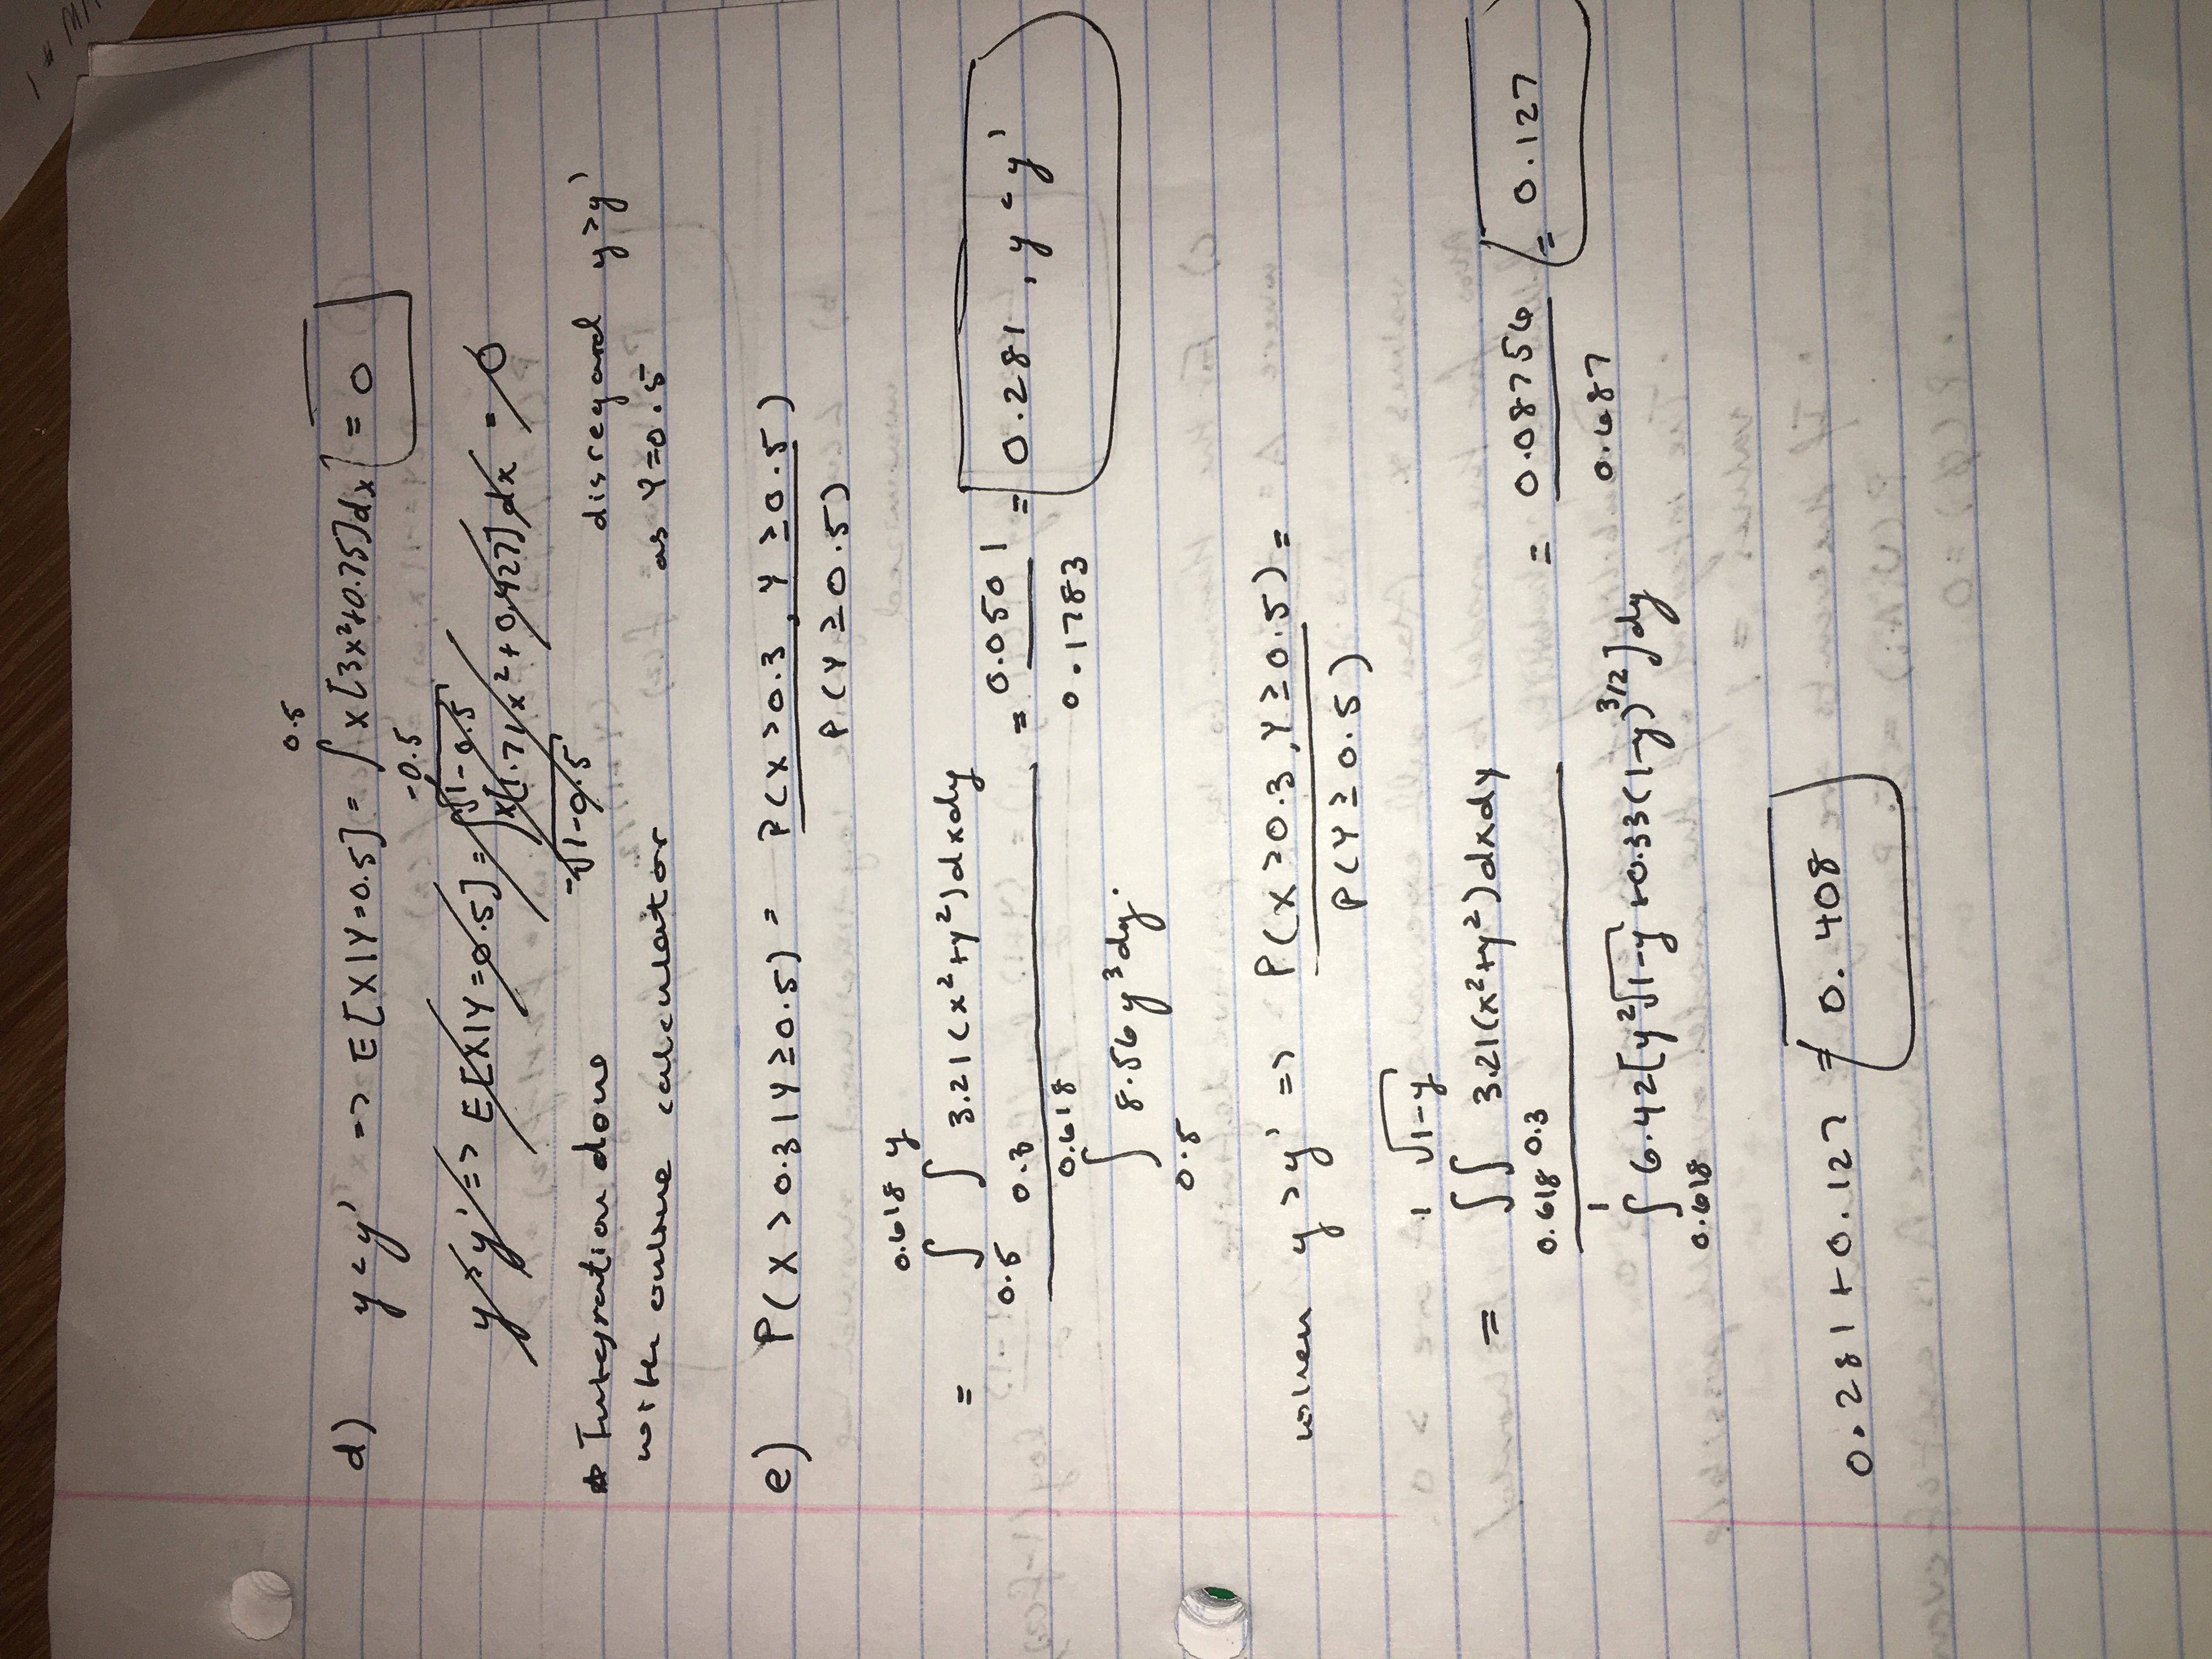 d) y < y' => E[X|Y=0.5] = ∫_{-0.5}^{0.5} x[3x²+0.75]dx = 0
y > y' => E[X|Y=0.5] = ∫_{-√1-0.5}^{√1-0.5} x[1.71x²+0.427]dx = 0
* Integration done
with online calculator
disregard y>y'
as Y=0.5
e) P(X>0.3|Y≥0.5) = P(X>0.3, Y≥0.5) / P(Y≥0.5)
= ∫_{0.5}^{0.618} ∫_{0.3}^{y} 3.21(x²+y²)dxdy / ∫_{0.5}^{0.618} 8.56y³dy = 0.0501 / 0.1783 = 0.281, y<y'
when y>y' => P(X>0.3, Y≥0.5) / P(Y≥0.5) =
= ∫_{0.618}^{1} ∫_{0.3}^{√1-y} 3.21(x²+y²)dxdy / ∫_{0.618}^{1} 6.42[y²√1-y +0.33(1-y)^{3/2}]dy = 0.08756 / 0.687 = 0.127
0.281+0.127 = 0.408